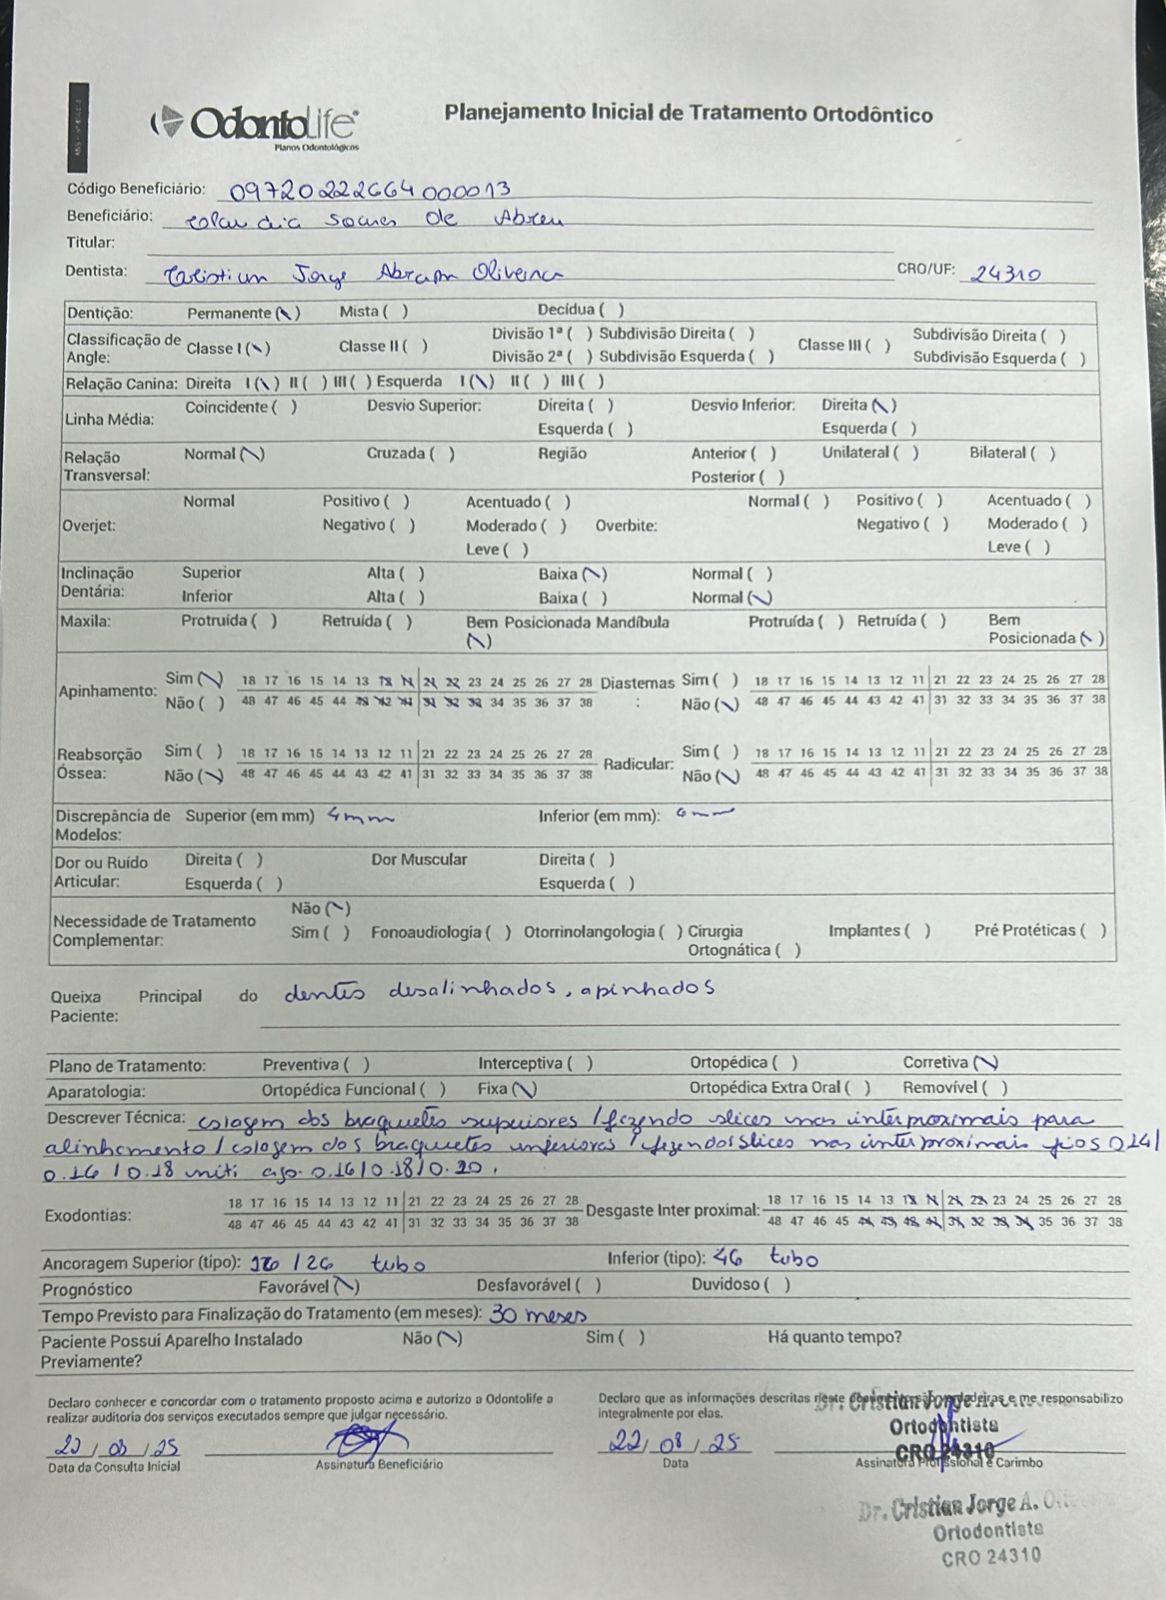 OdontoLife
Planos Odontológicos
Planejamento Inicial de Tratamento Ortodôntico
Código Beneficiário: 09720222664000013
Beneficiário: Claudia Soares de Abreu
Titular:
Dentista: Cristian Jorge Abraan Oliveira CRO/UF: 24310
Dentição: Permanente (\) Mista ( ) Decídua ( )
Classificação de Angle: Classe I (\) Classe II ( ) Divisão 1ª ( ) Subdivisão Direita ( ) Classe III ( ) Subdivisão Direita ( )
Divisão 2ª ( ) Subdivisão Esquerda ( ) Subdivisão Esquerda ( )
Relação Canina: Direita I (\) II ( ) III ( ) Esquerda I (\) II ( ) III ( )
Linha Média: Coincidente ( ) Desvio Superior: Direita ( ) Desvio Inferior: Direita (\)
Esquerda ( ) Esquerda ( )
Relação Transversal: Normal (\) Cruzada ( ) Região Anterior ( ) Unilateral ( ) Bilateral ( )
Posterior ( )
Normal Positivo ( ) Acentuado ( ) Normal ( ) Positivo ( ) Acentuado ( )
Overjet: Negativo ( ) Moderado ( ) Overbite: Negativo ( ) Moderado ( )
Leve ( ) Leve ( )
Inclinação Dentária: Superior Alta ( ) Baixa (\) Normal ( )
Inferior Alta ( ) Baixa ( ) Normal (\)
Maxila: Protruída ( ) Retruída ( ) Bem Posicionada (\) Mandíbula Protruída ( ) Retruída ( ) Bem Posicionada (\)
Apinhamento: Sim (\) 18 17 16 15 14 13 12 11 21 22 23 24 25 26 27 28 Diastemas: Sim ( ) 18 17 16 15 14 13 12 11 21 22 23 24 25 26 27 28
Não ( ) 48 47 46 45 44 43 42 41 31 32 33 34 35 36 37 38 Não (\) 48 47 46 45 44 43 42 41 31 32 33 34 35 36 37 38
Reabsorção Óssea: Sim ( ) 18 17 16 15 14 13 12 11 21 22 23 24 25 26 27 28 Radicular: Sim ( ) 18 17 16 15 14 13 12 11 21 22 23 24 25 26 27 28
Não (\) 48 47 46 45 44 43 42 41 31 32 33 34 35 36 37 38 Não (\) 48 47 46 45 44 43 42 41 31 32 33 34 35 36 37 38
Discrepância de Modelos: Superior (em mm) 4mm Inferior (em mm):
Dor ou Ruído Articular: Direita ( ) Dor Muscular Direita ( )
Esquerda ( ) Esquerda ( )
Necessidade de Tratamento Complementar: Não (\)
Sim ( ) Fonoaudiologia ( ) Otorrinolangologia ( ) Cirurgia Ortognática ( ) Implantes ( ) Pré Protéticas ( )
Queixa Principal do Paciente: dentes desalinhados, apinhados
Plano de Tratamento: Preventiva ( ) Interceptiva ( ) Ortopédica ( ) Corretiva (\)
Aparatologia: Ortopédica Funcional ( ) Fixa (\) Ortopédica Extra Oral ( ) Removível ( )
Descrever Técnica: colagem dos braquetes superiores / fazendo slices nas interproximais para
alinhamento / colagem dos braquetes inferiores / fazendo slices nas interproximais fios 0.14 /
0.16 / 0.18 niti aço. 0.16 / 0.18 / 0.20.
Exodontias: 18 17 16 15 14 13 12 11 21 22 23 24 25 26 27 28 Desgaste Inter proximal: 18 17 16 15 14 13 12 11 21 22 23 24 25 26 27 28
48 47 46 45 44 43 42 41 31 32 33 34 35 36 37 38 48 47 46 45 44 43 42 41 31 32 33 34 35 36 37 38
Ancoragem Superior (tipo): 16 / 26 tubo Inferior (tipo): 46 tubo
Prognóstico Favorável (\) Desfavorável ( ) Duvidoso ( )
Tempo Previsto para Finalização do Tratamento (em meses): 30 meses
Paciente Possui Aparelho Instalado Previamente? Não (\) Sim ( ) Há quanto tempo?
Declaro conhecer e concordar com o tratamento proposto acima e autorizo a Odontolife a
realizar auditoria dos serviços executados sempre que julgar necessário.
Declaro que as informações descritas neste documento são verdadeiras e me responsabilizo
integralmente por elas.
22 / 08 / 25
Data da Consulta Inicial Assinatura Beneficiário
22 / 08 / 25
Data Assinatura Profissional e Carimbo
Dr. Cristian Jorge A.
Ortodontista
CRO 24310
Dr. Cristian Jorge A.
Ortodontista
CRO 24310